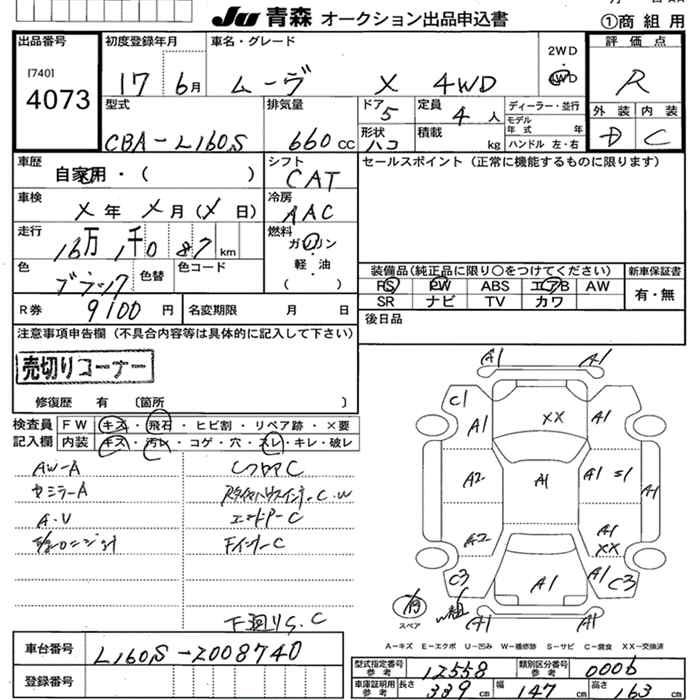 Ju 青森 オークション出品申込書
①商 組 用
出品番号 初度登録年月 車名・グレード 2WD 評価点
[740]
4073
17 6月 ムーヴ X 4WD 4WD R
型式 排気量 ドア 定員 ディーラー・並行 外装 内装
CBA-L160S 660cc 5 4人 モデル年式 年 D C
形状 積載 ハコ kg ハンドル 左・右
車歴 シフト セールスポイント (正常に機能するものに限ります)
自家用・( ) CAT
車検 冷房
X年 X月(X日) AAC
走行 燃料
16万 1千087 km ガソリン
軽・油
( )
色 色替 色コード 装備品(純正品に限り○をつけてください) 新車保証書
ブラック
PS PW ABS エアB AW 有・無
R券 9100円 名変期限 月 日 SR ナビ TV カワ
注意事項申告欄(不具合内容等は具体的に記入して下さい) 後日品
売切りコーナー
修復歴 有 〔箇所 〕
検査員 FW キズ・飛石・ヒビ割・リペア跡・×要
記入欄 内装 キズ・汚レ・コゲ・穴・スレ・キレ・破レ
AW-A
A・V
エンドアーC
FインナーC
下廻りS.C
A1 A1
C1 A1 XX A1
A2 A1 A1 S1 A1
A2 A1 XX
C3 A1 A1 C3
スペア
A1 A1
A-キズ E-エクボ U-凹み W-補修跡 S-サビ C-腐食 XX-交換済
車台番号 L160S-Z008740
登録番号
型式指定番号 参考 12558 類別区分番号 参考 0006
車庫証明用 参考 長さ 339cm 幅 147cm 高さ 163cm